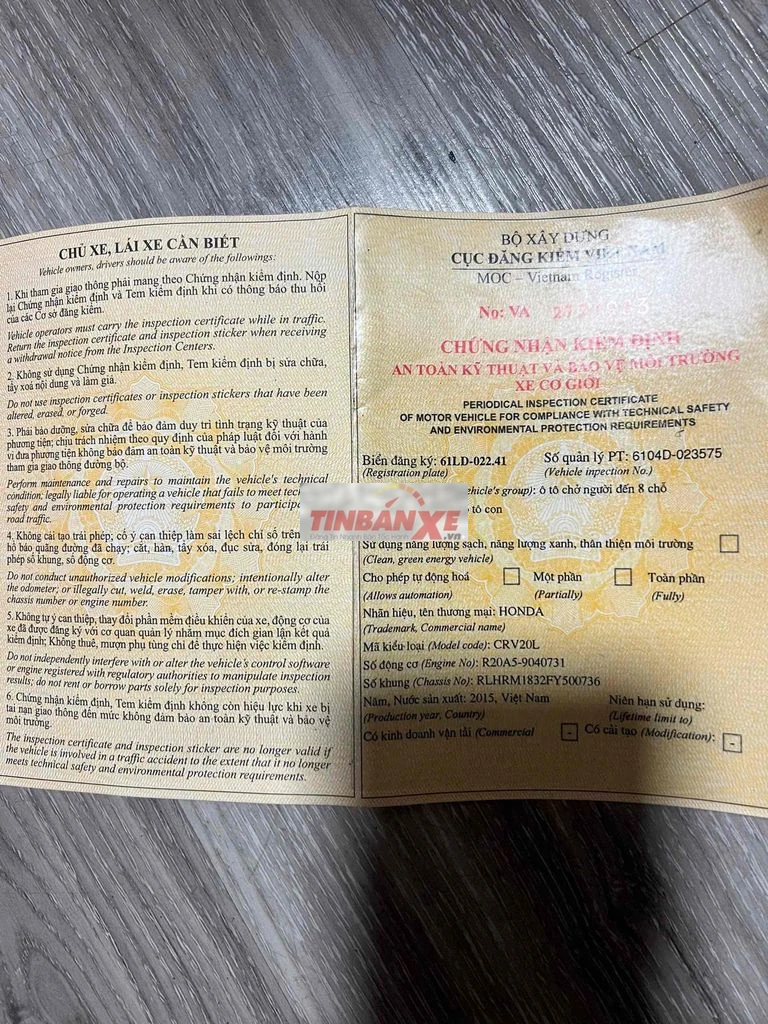 CHỦ XE, LÁI XE CẦN BIẾT
Vehicle owners, drivers should be aware of the followings:
1. Khi tham gia giao thông phải mang theo Chứng nhận kiểm định. Nộp
lại Chứng nhận kiểm định và Tem kiểm định khi có thông báo thu hồi
của các Cơ sở đăng kiểm.
Vehicle operators must carry the inspection certificate while in traffic.
Return the inspection certificate and inspection sticker when receiving
a withdrawal notice from the Inspection Centers.
2. Không sử dụng Chứng nhận kiểm định, Tem kiểm định bị sửa chữa,
tẩy xoá nội dung và làm giả.
Do not use inspection certificates or inspection stickers that have been
altered, erased, or forged.
3. Phải bảo dưỡng, sửa chữa để bảo đảm duy trì tình trạng kỹ thuật của
phương tiện; chịu trách nhiệm theo quy định của pháp luật đối với hành
vi đưa phương tiện không bảo đảm an toàn kỹ thuật và bảo vệ môi trường
tham gia giao thông đường bộ.
Perform maintenance and repairs to maintain the vehicle's technical
condition; legally liable for operating a vehicle that fails to meet
safety and environmental protection requirements to
road traffic.
4. Không cải tạo trái phép; cố ý can thiệp làm sai lệch chỉ số trên
hồ báo quãng đường đã chạy; cắt, hàn, tẩy xóa, đục sửa, đóng lại trái
phép số khung, số động cơ.
Do not conduct unauthorized vehicle modifications; intentionally alter
the odometer; or illegally cut, weld, erase, tamper with, or re-stamp the
chassis number or engine number.
5. Không tự ý can thiệp, thay đổi phần mềm điều khiển của xe, động cơ của
xe đã được đăng ký với cơ quan quản lý nhằm mục đích gian lận kết quả
kiểm định; Không thuê, mượn phụ tùng chỉ để thực hiện việc kiểm định.
Do not independently interfere with or alter the vehicle's control software
or engine registered with regulatory authorities to manipulate inspection
results; do not rent or borrow parts solely for inspection purposes.
6. Chứng nhận kiểm định, Tem kiểm định không còn hiệu lực khi xe bị
tai nạn giao thông đến mức không đảm bảo an toàn kỹ thuật và bảo vệ
môi trường.
The inspection certificate and inspection sticker are no longer valid if
the vehicle is involved in a traffic accident to the extent that it no longer
meets technical safety and environmental protection requirements.
BỘ XÂY DỰNG
CỤC ĐĂNG KIỂM VIỆT NAM
MOC – Vietnam Register
No: VA
CHỨNG NHẬN KIỂM ĐỊNH
AN TOÀN KỸ THUẬT VÀ BẢO VỆ MÔI TRƯỜNG
XE CƠ GIỚI
PERIODICAL INSPECTION CERTIFICATE
OF MOTOR VEHICLE FOR COMPLIANCE WITH TECHNICAL SAFETY
AND ENVIRONMENTAL PROTECTION REQUIREMENTS
Biển đăng ký: 61LD-022.41 Số quản lý PT: 6104D-023575
(Registration plate) (Vehicle inpection No.)
vehicle's group): ô tô chở người đến 8 chỗ
tô con
TINBÁNXE.vn
Sử dụng năng lượng sạch, năng lượng xanh, thân thiện môi trường
(Clean, green energy vehicle)
Cho phép tự động hoá Một phần Toàn phần
(Allows automation) (Partially) (Fully)
Nhãn hiệu, tên thương mại: HONDA
(Trademark, Commercial name)
Mã kiểu loại (Model code): CRV20L
Số động cơ (Engine No): R20A5-9040731
Số khung (Chassis No): RLHRM1832FY500736
Năm, Nước sản xuất: 2015, Việt Nam Niên hạn sử dụng:
(Production year, Country) (Lifetime limit to)
Có kinh doanh vận tải (Commercial - Có cải tạo (Modification): -